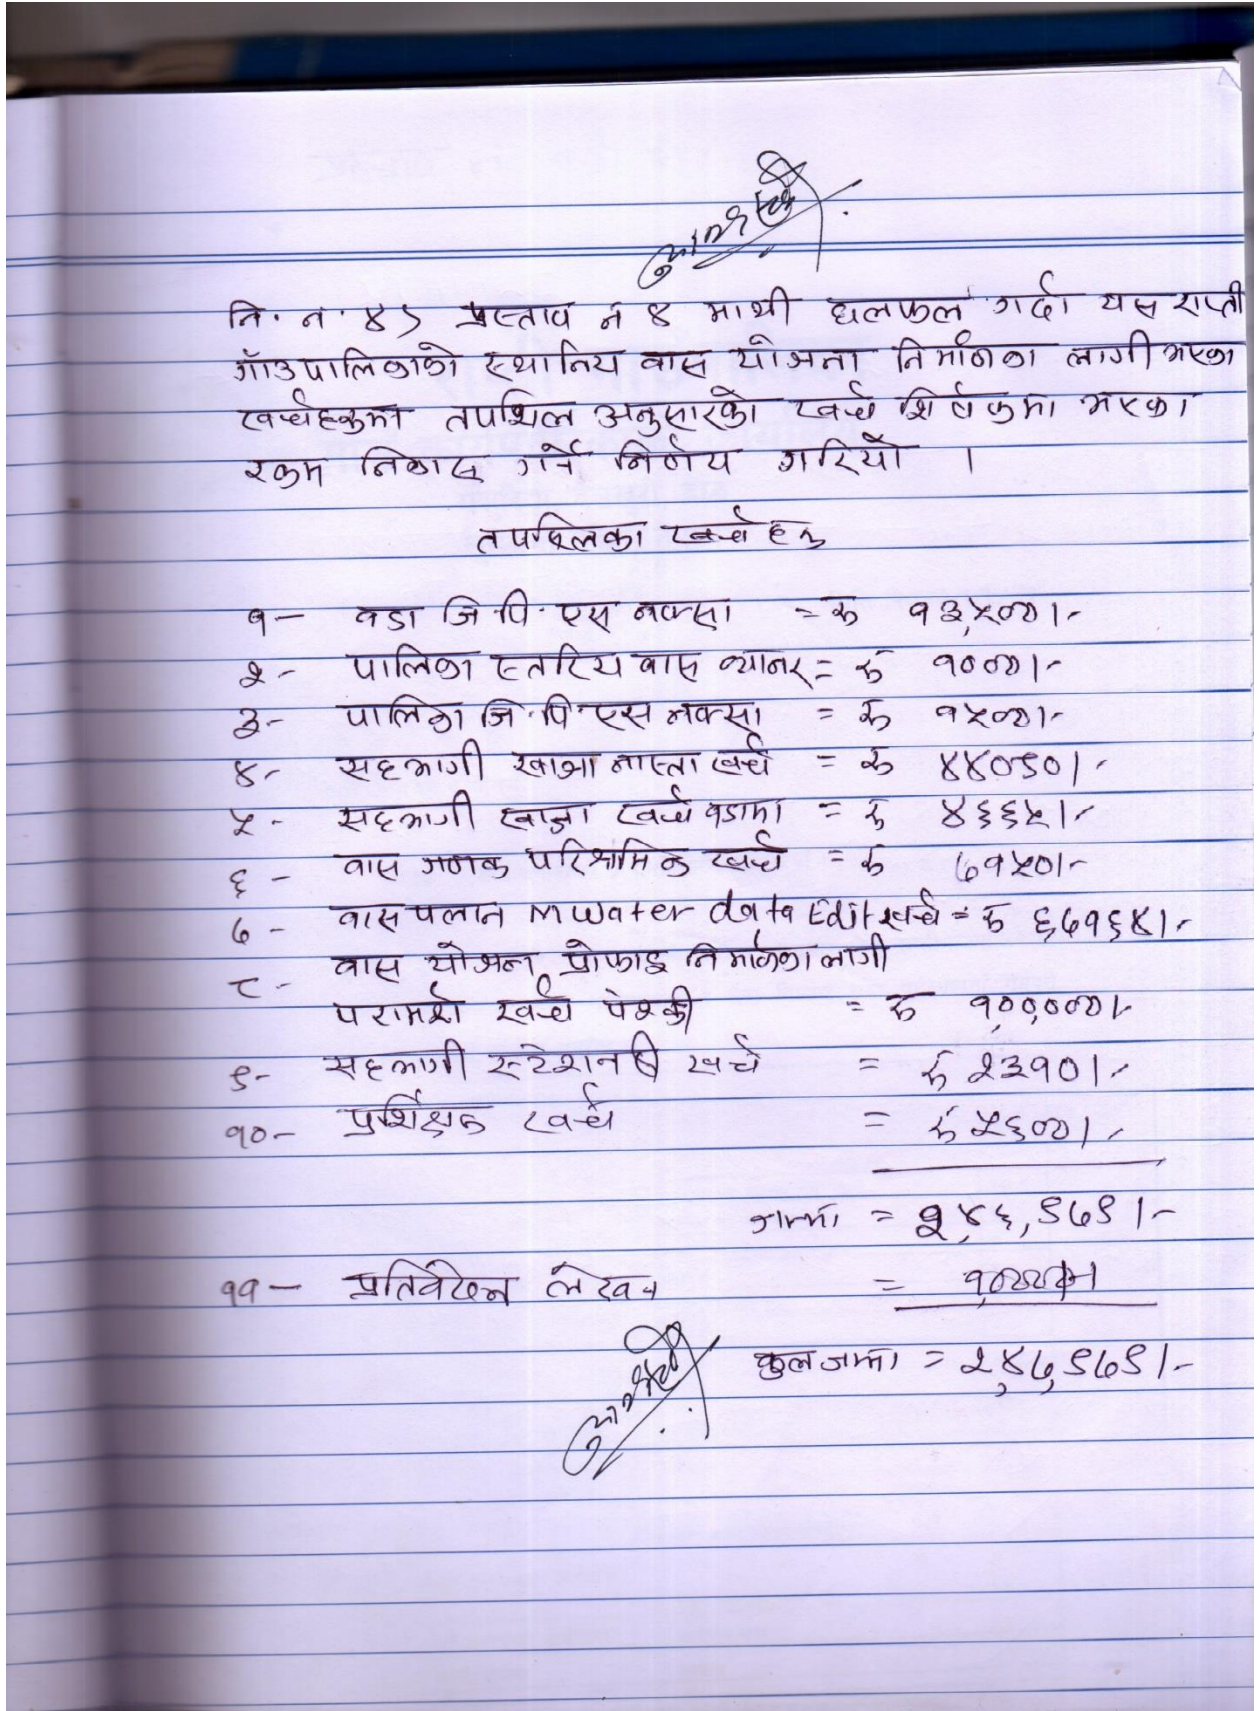 नि. न. ४) प्रस्ताव नं ४ माथी छलफल गर्दा यस राप्ती
गाँउपालिकाको स्थानिय वास योजना निर्माणका लागी भएका
खर्चहरुमा तपशिल अनुसारको खर्च शिर्षकमा भएका
रकम निकास गर्ने निर्णय गरियो ।
तपशिलका खर्चहरु
१- वडा जि.पि.एस नक्सा = रु १३,५००।-
२- पालिका स्तरिय वास व्यानर = रु १०००।-
३- पालिका जि.पि.एस नक्सा = रु १५००।-
४- सहभागी खाजा नास्ता खर्च = रु ४४०९०।-
५- सहभागी खाजा खर्च वडामा = रु ४६६५।-
६- वास गणक परिश्रामिक खर्च = रु ७१५०।-
७- वास पलान mwater data Edit खर्च = रु ६,७१६४।-
८- वास योजना प्रोफाइ निर्माणका लागी
परामर्श खर्च पेश्की = रु १,००,०००।-
९- सहभागी स्टेशनरी खर्च = रु २३१०।-
१०- प्रर्शिक्षक खर्च = रु ५६००।-
जम्मा = २,४६,९७९।-
११- प्रतिवेदन लेखन = १,०००।-
कुल जम्मा = २,४७,९७९।-